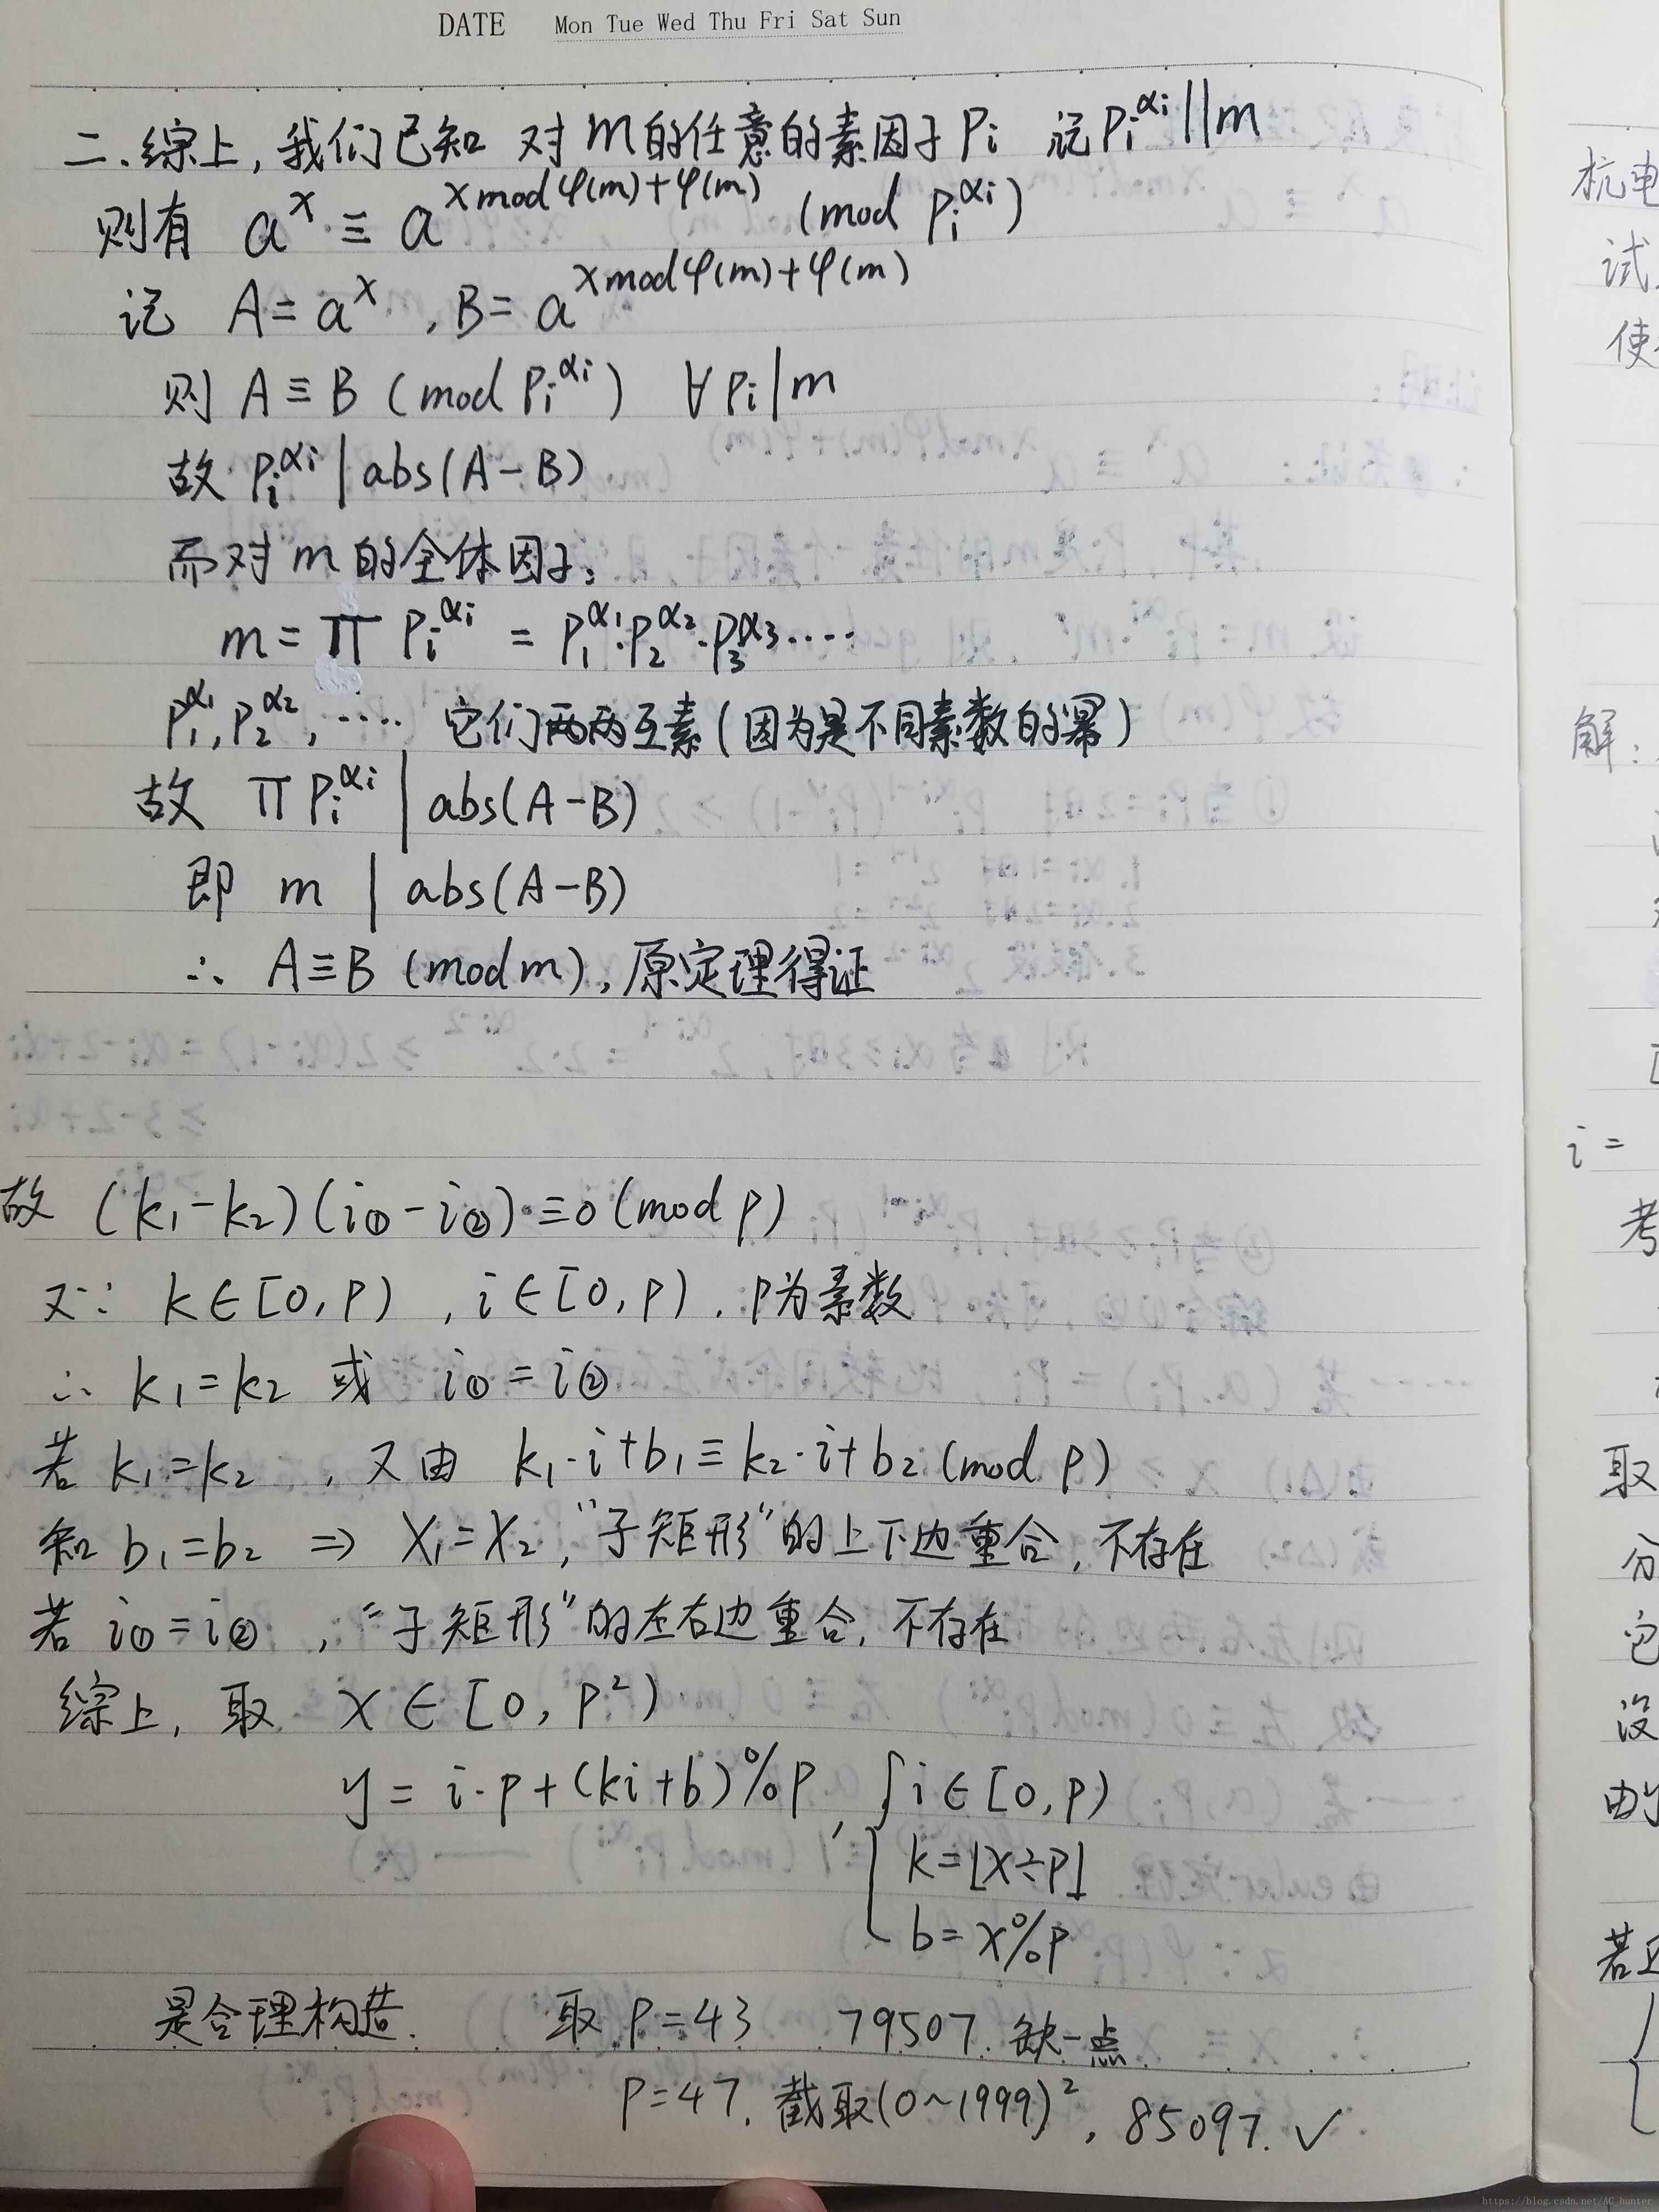 DATE Mon Tue Wed Thu Fri Sat Sun
二.综上,我们已知 对m的任意的素因子Pi 记Pi^αi||m
则有 a^x ≡ a^(x mod φ(m)+φ(m)) (mod Pi^αi)
记 A=a^x ,B=a^(x mod φ(m)+φ(m))
则 A≡B (mod Pi^αi) ∀Pi|m
故 Pi^αi | abs(A-B)
而对m的全体因子:
m=π Pi^αi = P1^α1·P2^α2·P3^α3····
P1^α1,P2^α2,···· 它们两两互素(因为是不同素数的幂)
故 πPi^αi | abs(A-B)
即 m | abs(A-B)
∴ A≡B (mod m),原定理得证
故 (k1-k2)(i①-i②)≡0(mod p)
又∵ k∈[0,p) ,i∈[0,p).p为素数
∴ k1=k2 或 i①=i②
若 k1=k2 ,又由 k1·i+b1≡k2·i+b2(mod p)
知 b1=b2 ⇒ X1=X2,"子矩形"的上下边重合,不存在
若 i①=i② ,"子矩形"的左右边重合,不存在
综上,取 x∈[0,p²)
y=i·p+(ki+b)%p, { i∈[0,p)
k=⌊x÷p⌋
b=x%p
是合理构造. 取 P=43 79507.缺一点
P=47.截取(0~1999)²,85097.✓
杭电
试
使
解:
i=
考
取
分
它
没
由
若
https://blog.csdn.net/AC_hunter